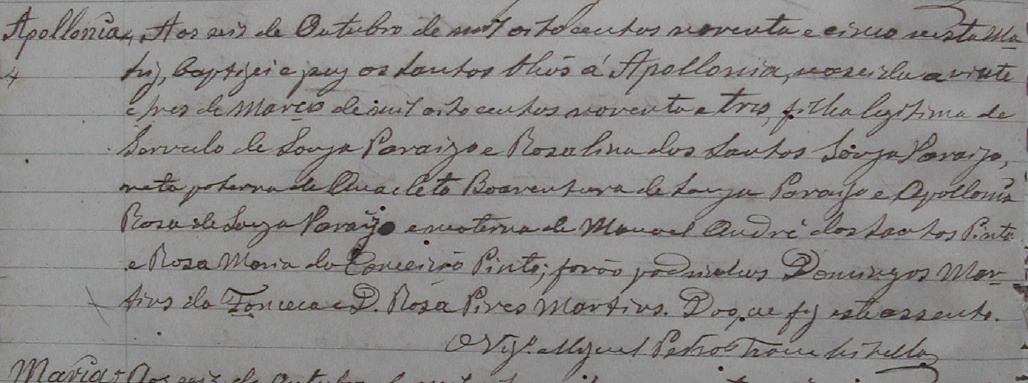 Apollonia, Aos seis de Outubro de mil oitocentos noventa e cinco nesta Ma-
4 triz, baptizei e puz os Santos Oleos á Apollonia, nascida a vinte
e tres de Março de mil oitocentos noventa e tres, filha legitima de
Servulo de Souza Paraizo e Rosalina dos Santos Souza Paraizo,
neta paterna de Anacleto Boaventura de Souza Paraizo e Apollonia
Rosa de Souza Paraizo e materna de Manoel André dos Santos Pinto
e Rosa Maria da Conceição Pinto; forão padrinhos Domingos Mar-
tins da Fonceca e D. Rosa Pires Martins. Do que fiz este assento.
O Vigº Miguel Petro
Maria, Aos seis de Outubro de mil